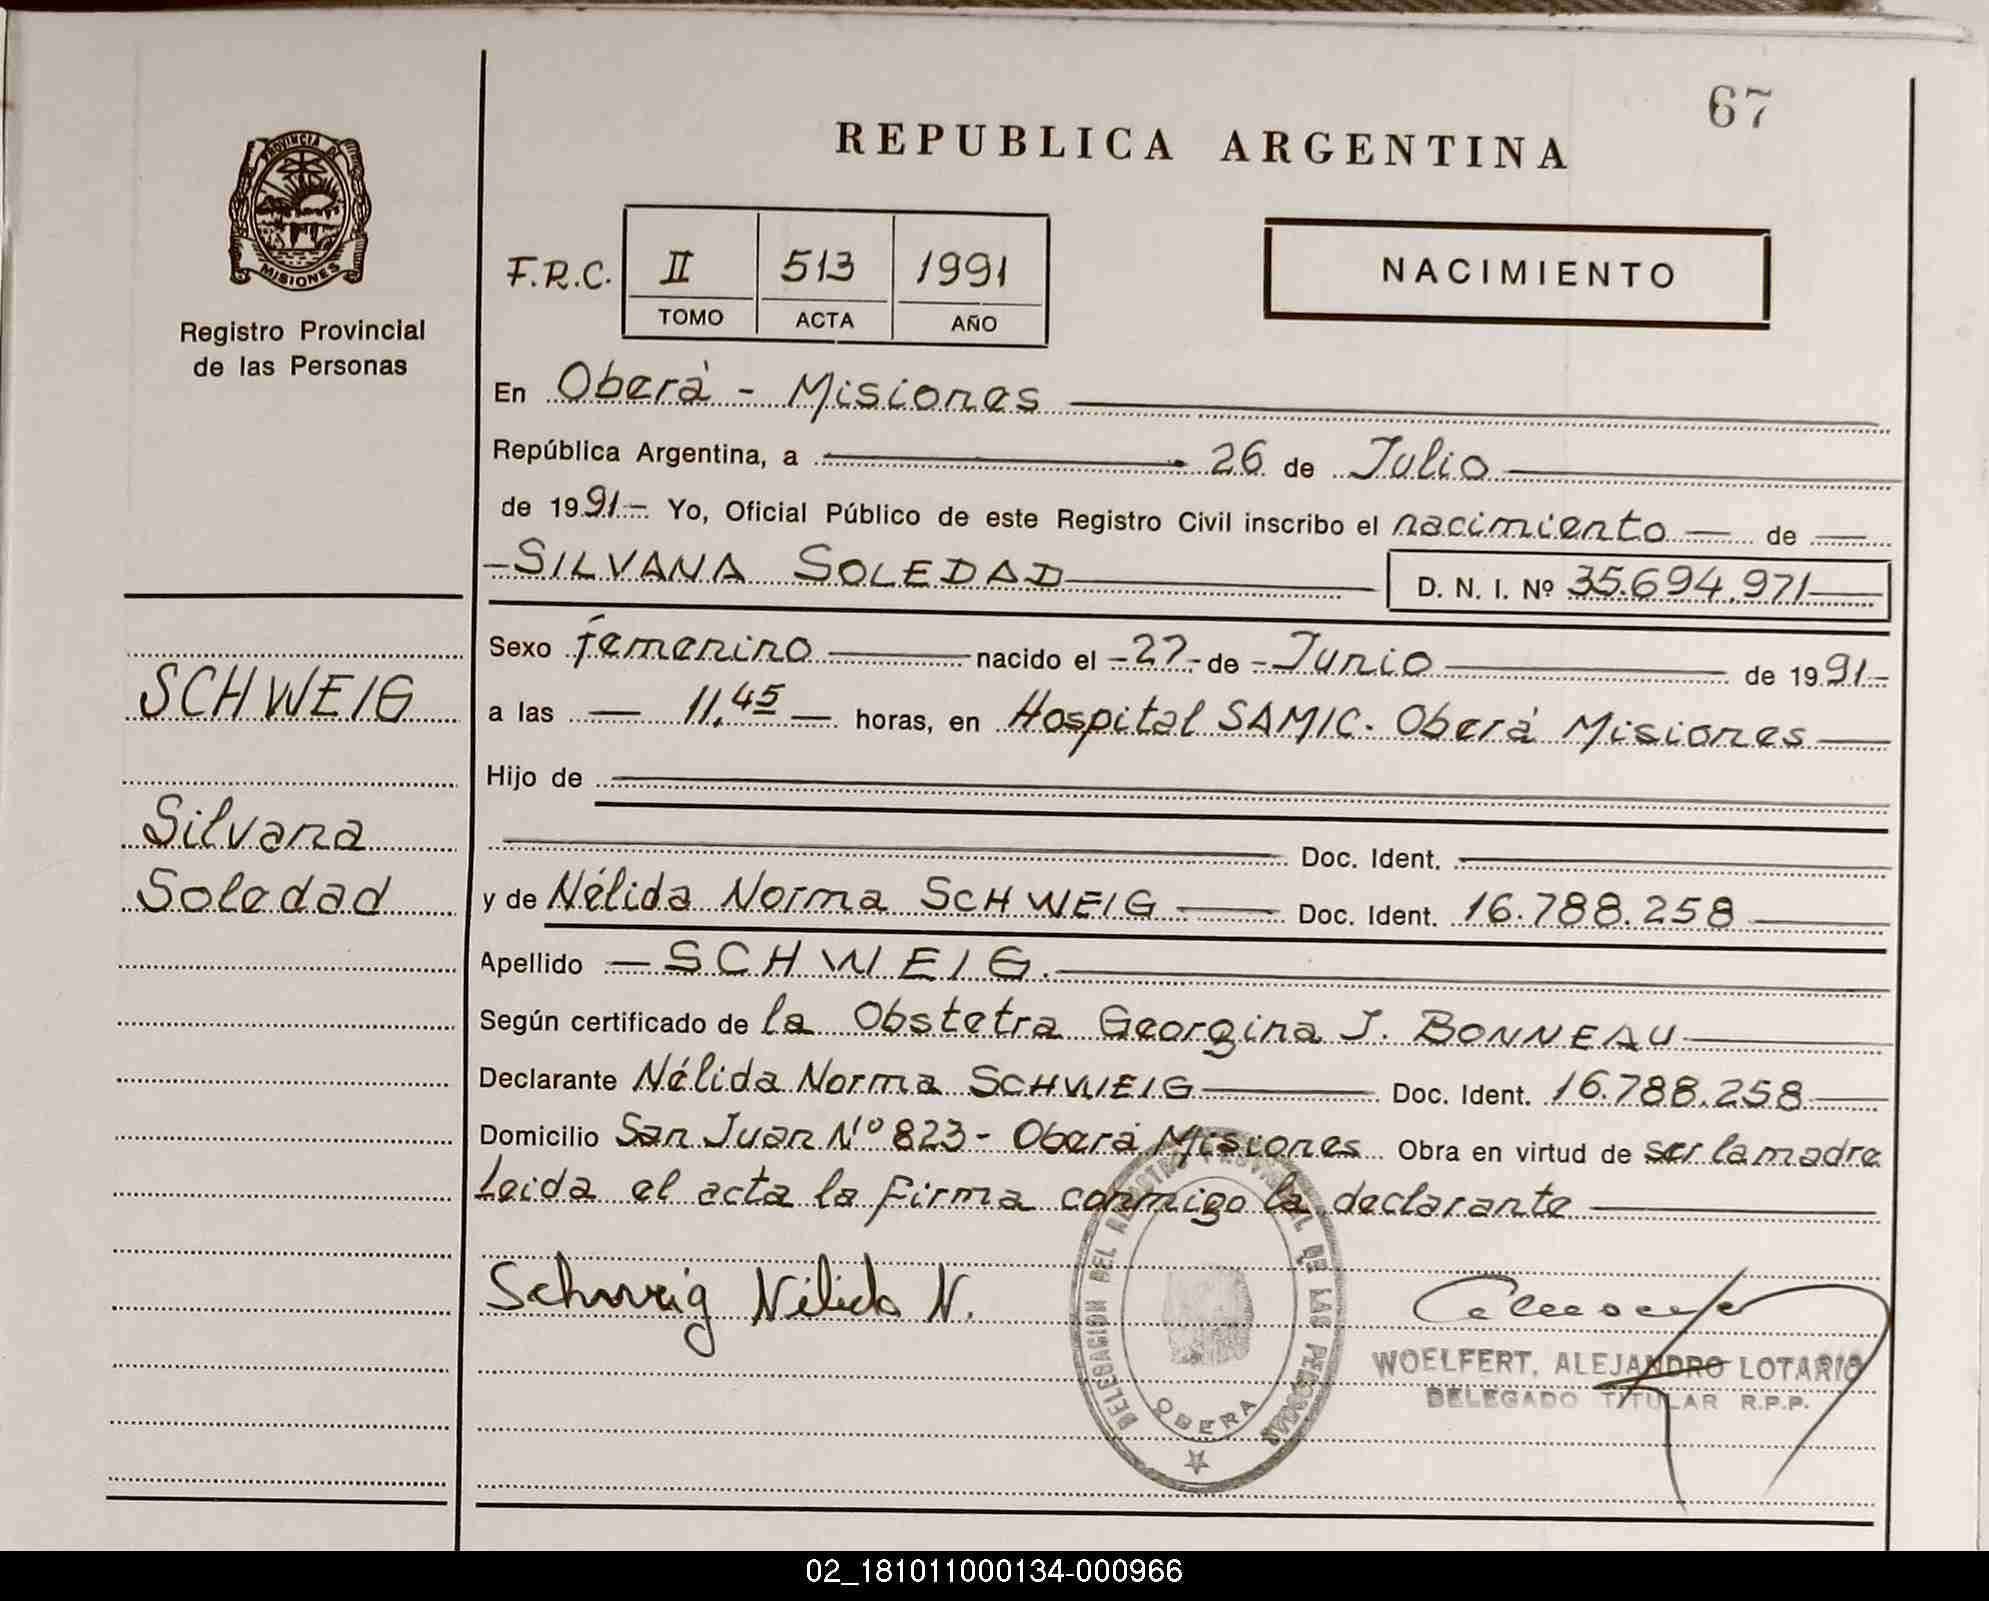 67
REPUBLICA ARGENTINA
PROVINCIA DE
MISIONES
Registro Provincial
de las Personas
F.R.C. II 513 1991
TOMO ACTA AÑO
NACIMIENTO
En Oberá - Misiones
República Argentina, a 26 de Julio
de 1991- Yo, Oficial Público de este Registro Civil inscribo el nacimiento — de —
-SILVANA SOLEDAD D. N. I. Nº 35.694.971
Sexo femenino nacido el -27- de - Junio de 1991-
SCHWEIG
a las — 11,45 — horas, en Hospital SAMIC. Oberá Misiones
Hijo de
Silvana
Doc. Ident.
Soledad
y de Nélida Norma SCHWEIG Doc. Ident. 16.788.258
Apellido — SCHWEIG.
Según certificado de la Obstetra Georgina J. BONNEAU
Declarante Nélida Norma SCHWEIG Doc. Ident. 16.788.258
Domicilio San Juan Nº 823- Oberá Misiones Obra en virtud de ser la madre
Leida el acta la firma conmigo la declarante
Schweig Nélida N.
DELEGACION DEL REGISTRO PROVINCIAL DE LAS PERSONAS
OBERA
WOELFERT, ALEJANDRO LOTARIO
DELEGADO TITULAR R.P.P.
02_181011000134-000966